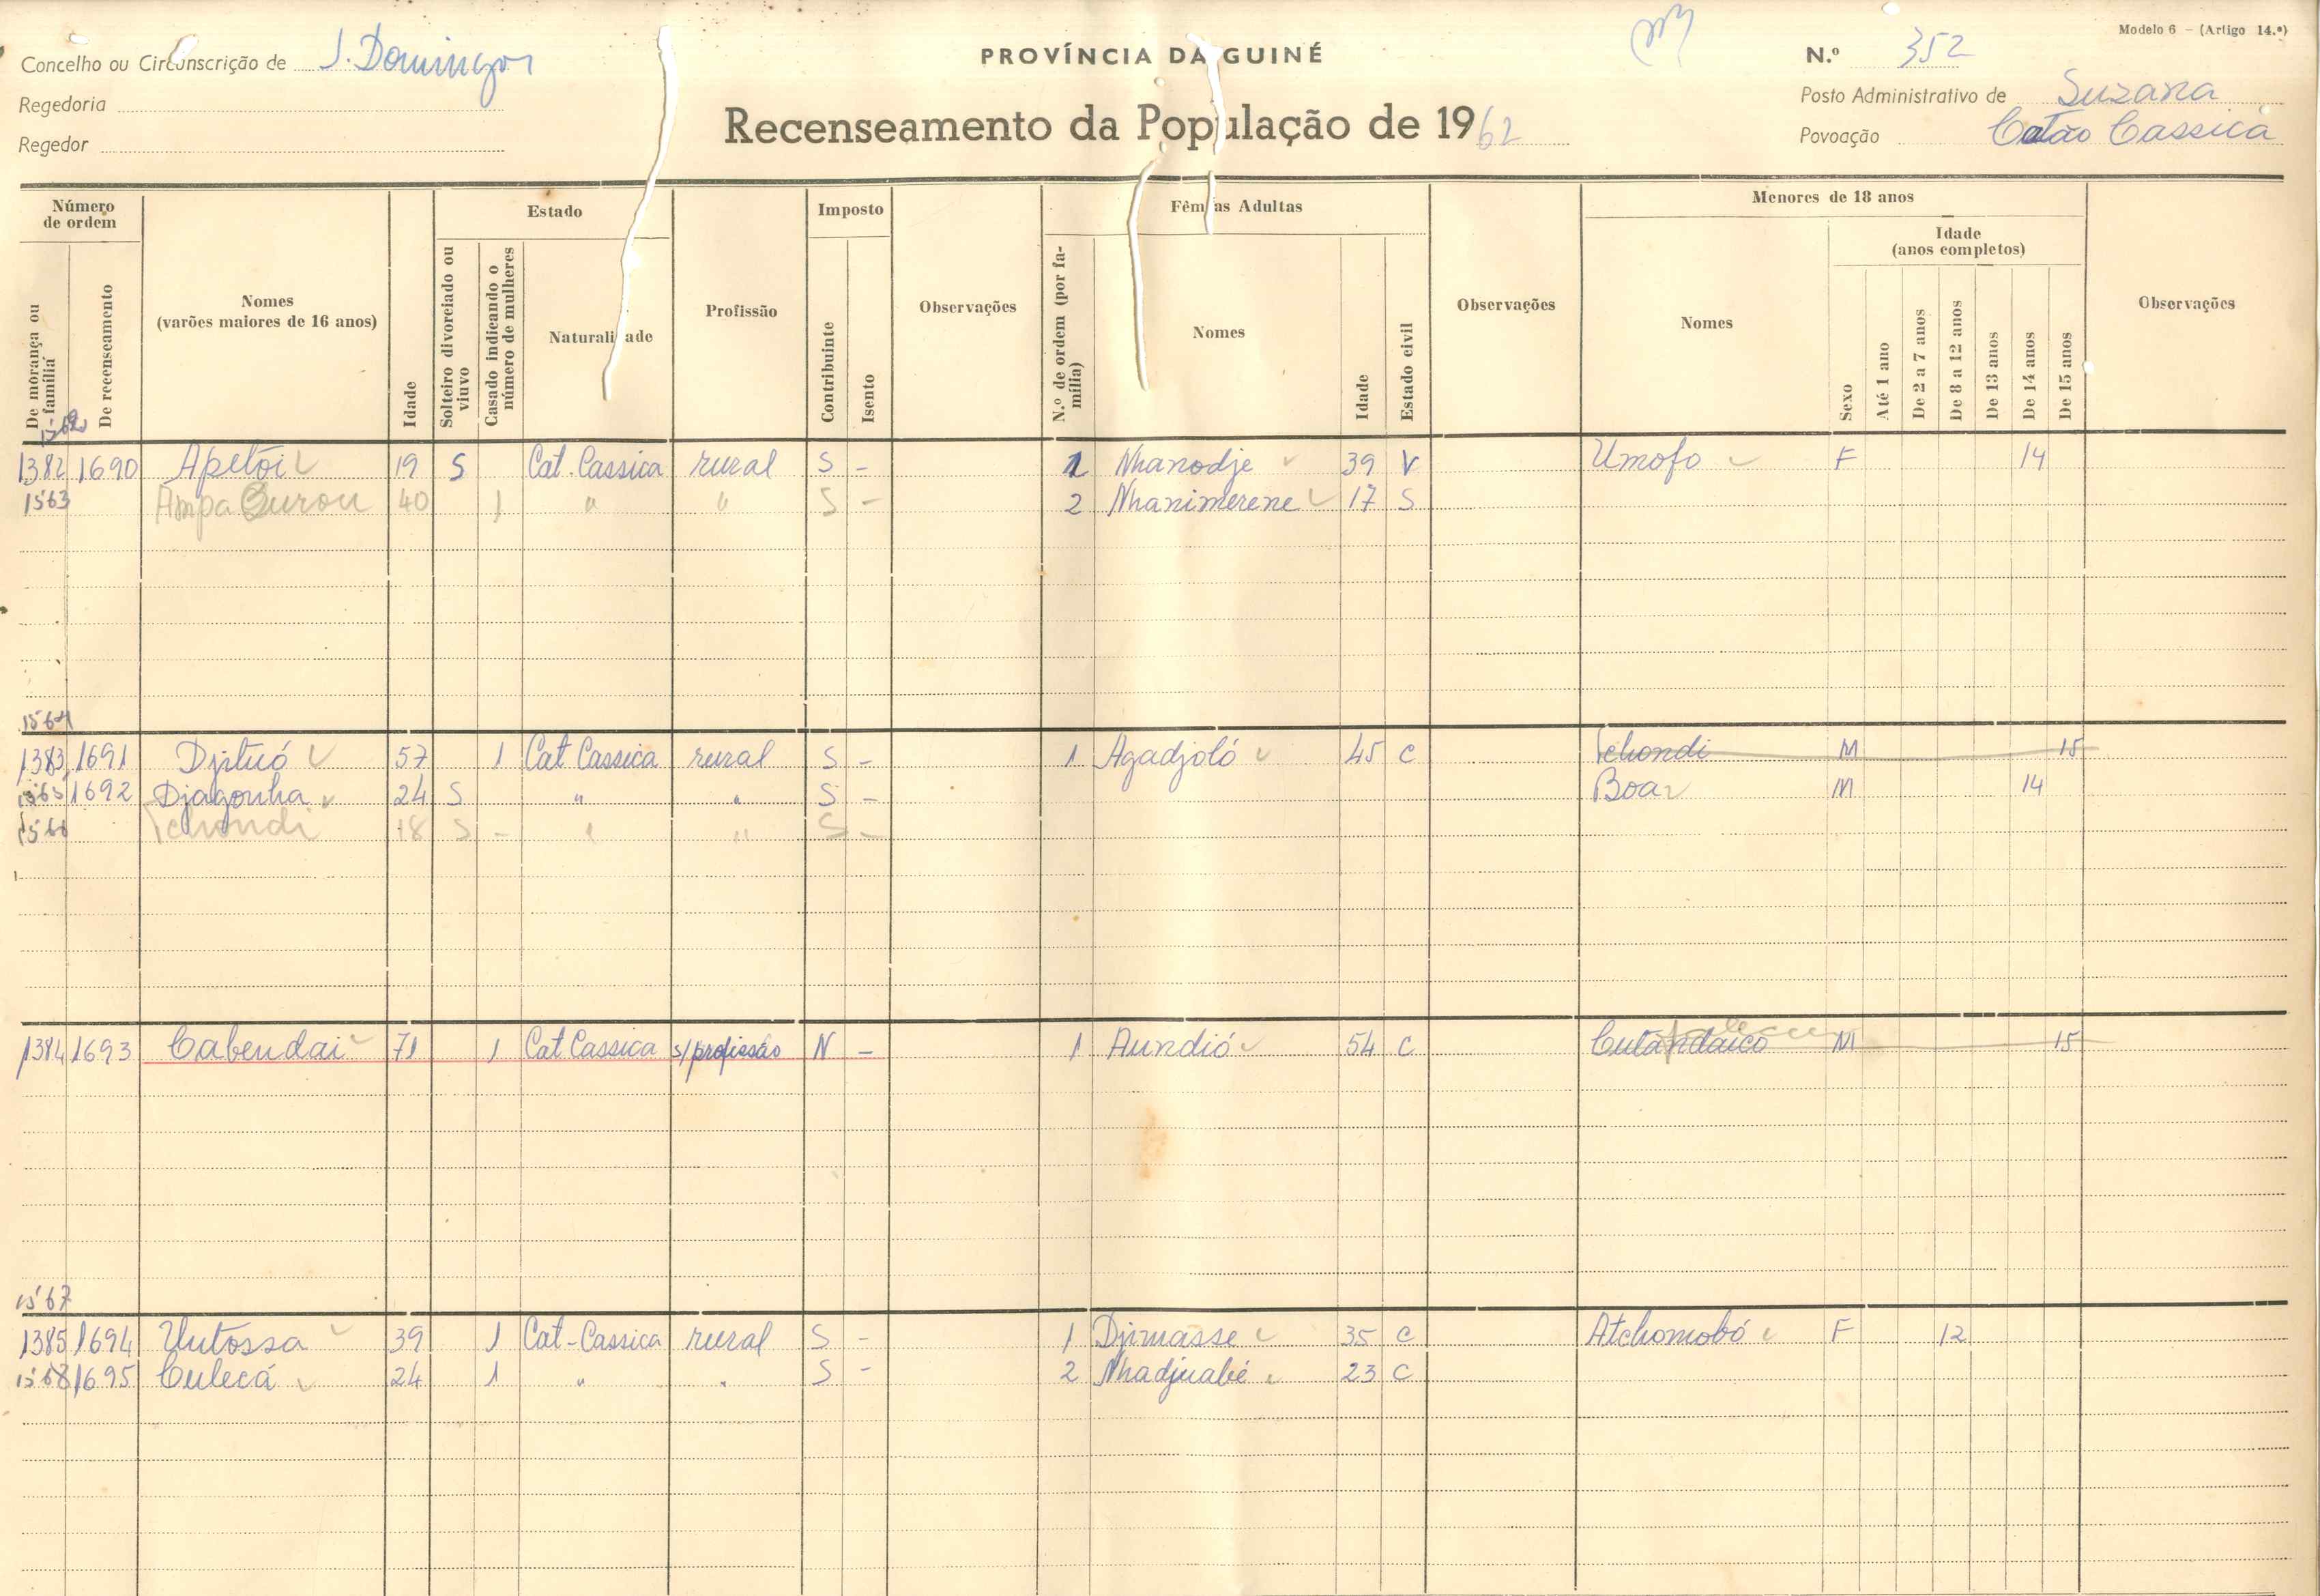 Modelo 6 - (Artigo 14.º)
Concelho ou Circunscrição de S. Domingos
PROVÍNCIA DA GUINÉ
N.º 352
Regedoria
Posto Administrativo de Suzana
Regedor
Recenseamento da População de 1962
Povoação Catão Cassica
Número de ordem
De morança ou família
De recenseamento
Nomes (varões maiores de 16 anos)
Idade
Estado
Solteiro divorciado ou viuvo
Casado indicando o número de mulheres
Naturalidade
Profissão
Imposto
Contribuinte
Isento
Observações
Fêmeas Adultas
N.º de ordem (por família)
Nomes
Idade
Estado civil
Observações
Menores de 18 anos
Nomes
Sexo
Idade (anos completos)
Até 1 ano
De 2 a 7 anos
De 8 a 12 anos
De 13 anos
De 14 anos
De 15 anos
Observações
1382 1690 Apetôi 19 S Cat. Cassica rural S - 1 Nhanodje 39 V Umofo F 14
1563 Ampa Curou 40 1 " " S - 2 Nhanimerene 17 S
1564
1383 1691 Djituó 57 1 Cat Cassica rural S - 1 Agadjoló 45 C Tchondi M 15
1565 1692 Djagonha 24 S " " S - Boa M 14
1566 Tchondi 18 S - " " S -
1384 1693 Cabendai 71 1 Cat Cassica s/profissão N - 1 Aundió 54 C Cutandaico M 15
1567
1385 1694 Untossa 39 1 Cat-Cassica rural S - 1 Djimasse 35 C Atchomobó F 12
1568 1695 Culecá 24 1 " " S - 2 Nhadjuabé 23 C